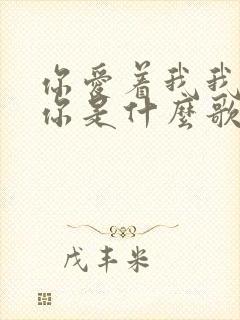 你爱着我我
你是什麼歌
戊丰米